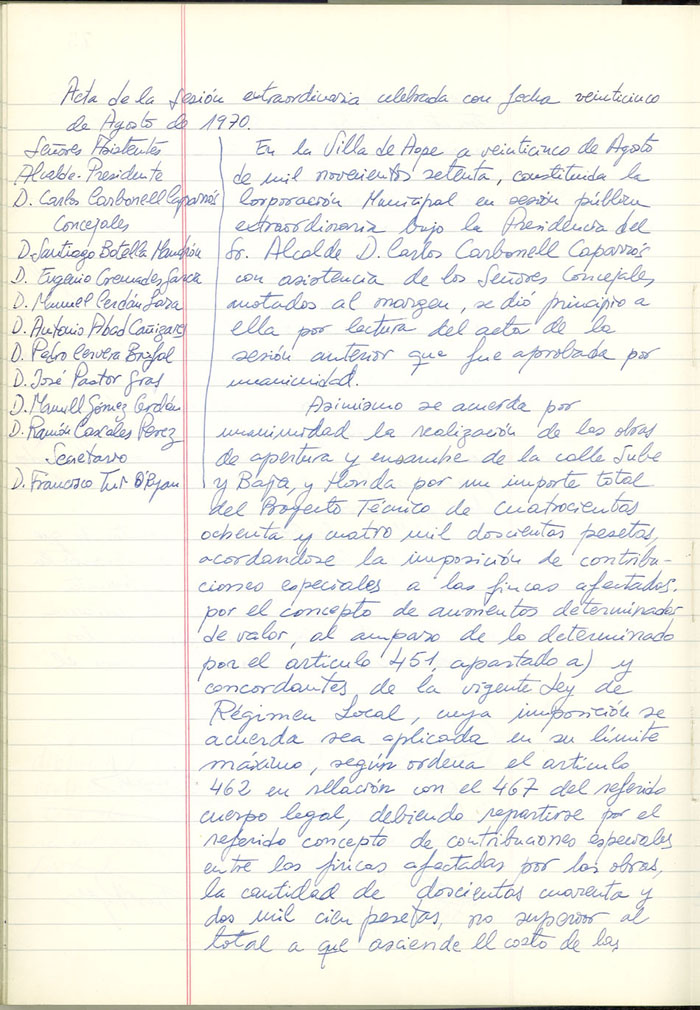 Acta de la Sesión extraordinaria celebrada con fecha veinticinco
de Agosto de 1970.
Señores Asistentes
Alcalde-Presidente
D. Carlos Carbonell Caparrós
Concejales
D. Santiago Botella
D. Eugenio Cremades García
D. Manuel Cerdán Jara
D. Antonio Abad Cañizares
D. Pedro Cervera Brufal
D. José Pastor Gras
D. Manuel Gómez Cerdán
D. Ramón Cascales Perez
Secretario
D. Francisco Tur O'Ryan
En la Villa de Aspe a veinticinco de Agosto
de mil novecientos setenta, constituida la
Corporación Municipal en sesión pública
extraordinaria bajo la Presidencia del
Sr. Alcalde D. Carlos Carbonell Caparrós
con asistencia de los Señores Concejales
anotados al margen, se dió principio a
ella por lectura del acta de la
sesión anterior que fue aprobada por
unanimidad.
Asimismo se acuerda por
unanimidad la realización de las obras
de apertura y ensanche de la calle Sube
y Baja, y Honda por un importe total
del Proyecto Técnico de cuatrocientas
ochenta y cuatro mil doscientas pesetas,
acordandose la imposición de contribu-
ciones especiales a las fincas afectadas.
por el concepto de aumentos determinados
de valor, al amparo de lo determinado
por el articulo 451, apartado a) y
concordantes de la vigente Ley de
Régimen Local, cuya imposición se
acuerda sea aplicada en su límite
máximo, según ordena el artículo
462 en relación con el 467 del referido
cuerpo legal, debiendo repartirse por el
referido concepto de contribuciones especiales
entre las fincas afectadas por las obras,
la cantidad de doscientas cuarenta y
dos mil cien pesetas, no superior al
total a que asciende el costo de las